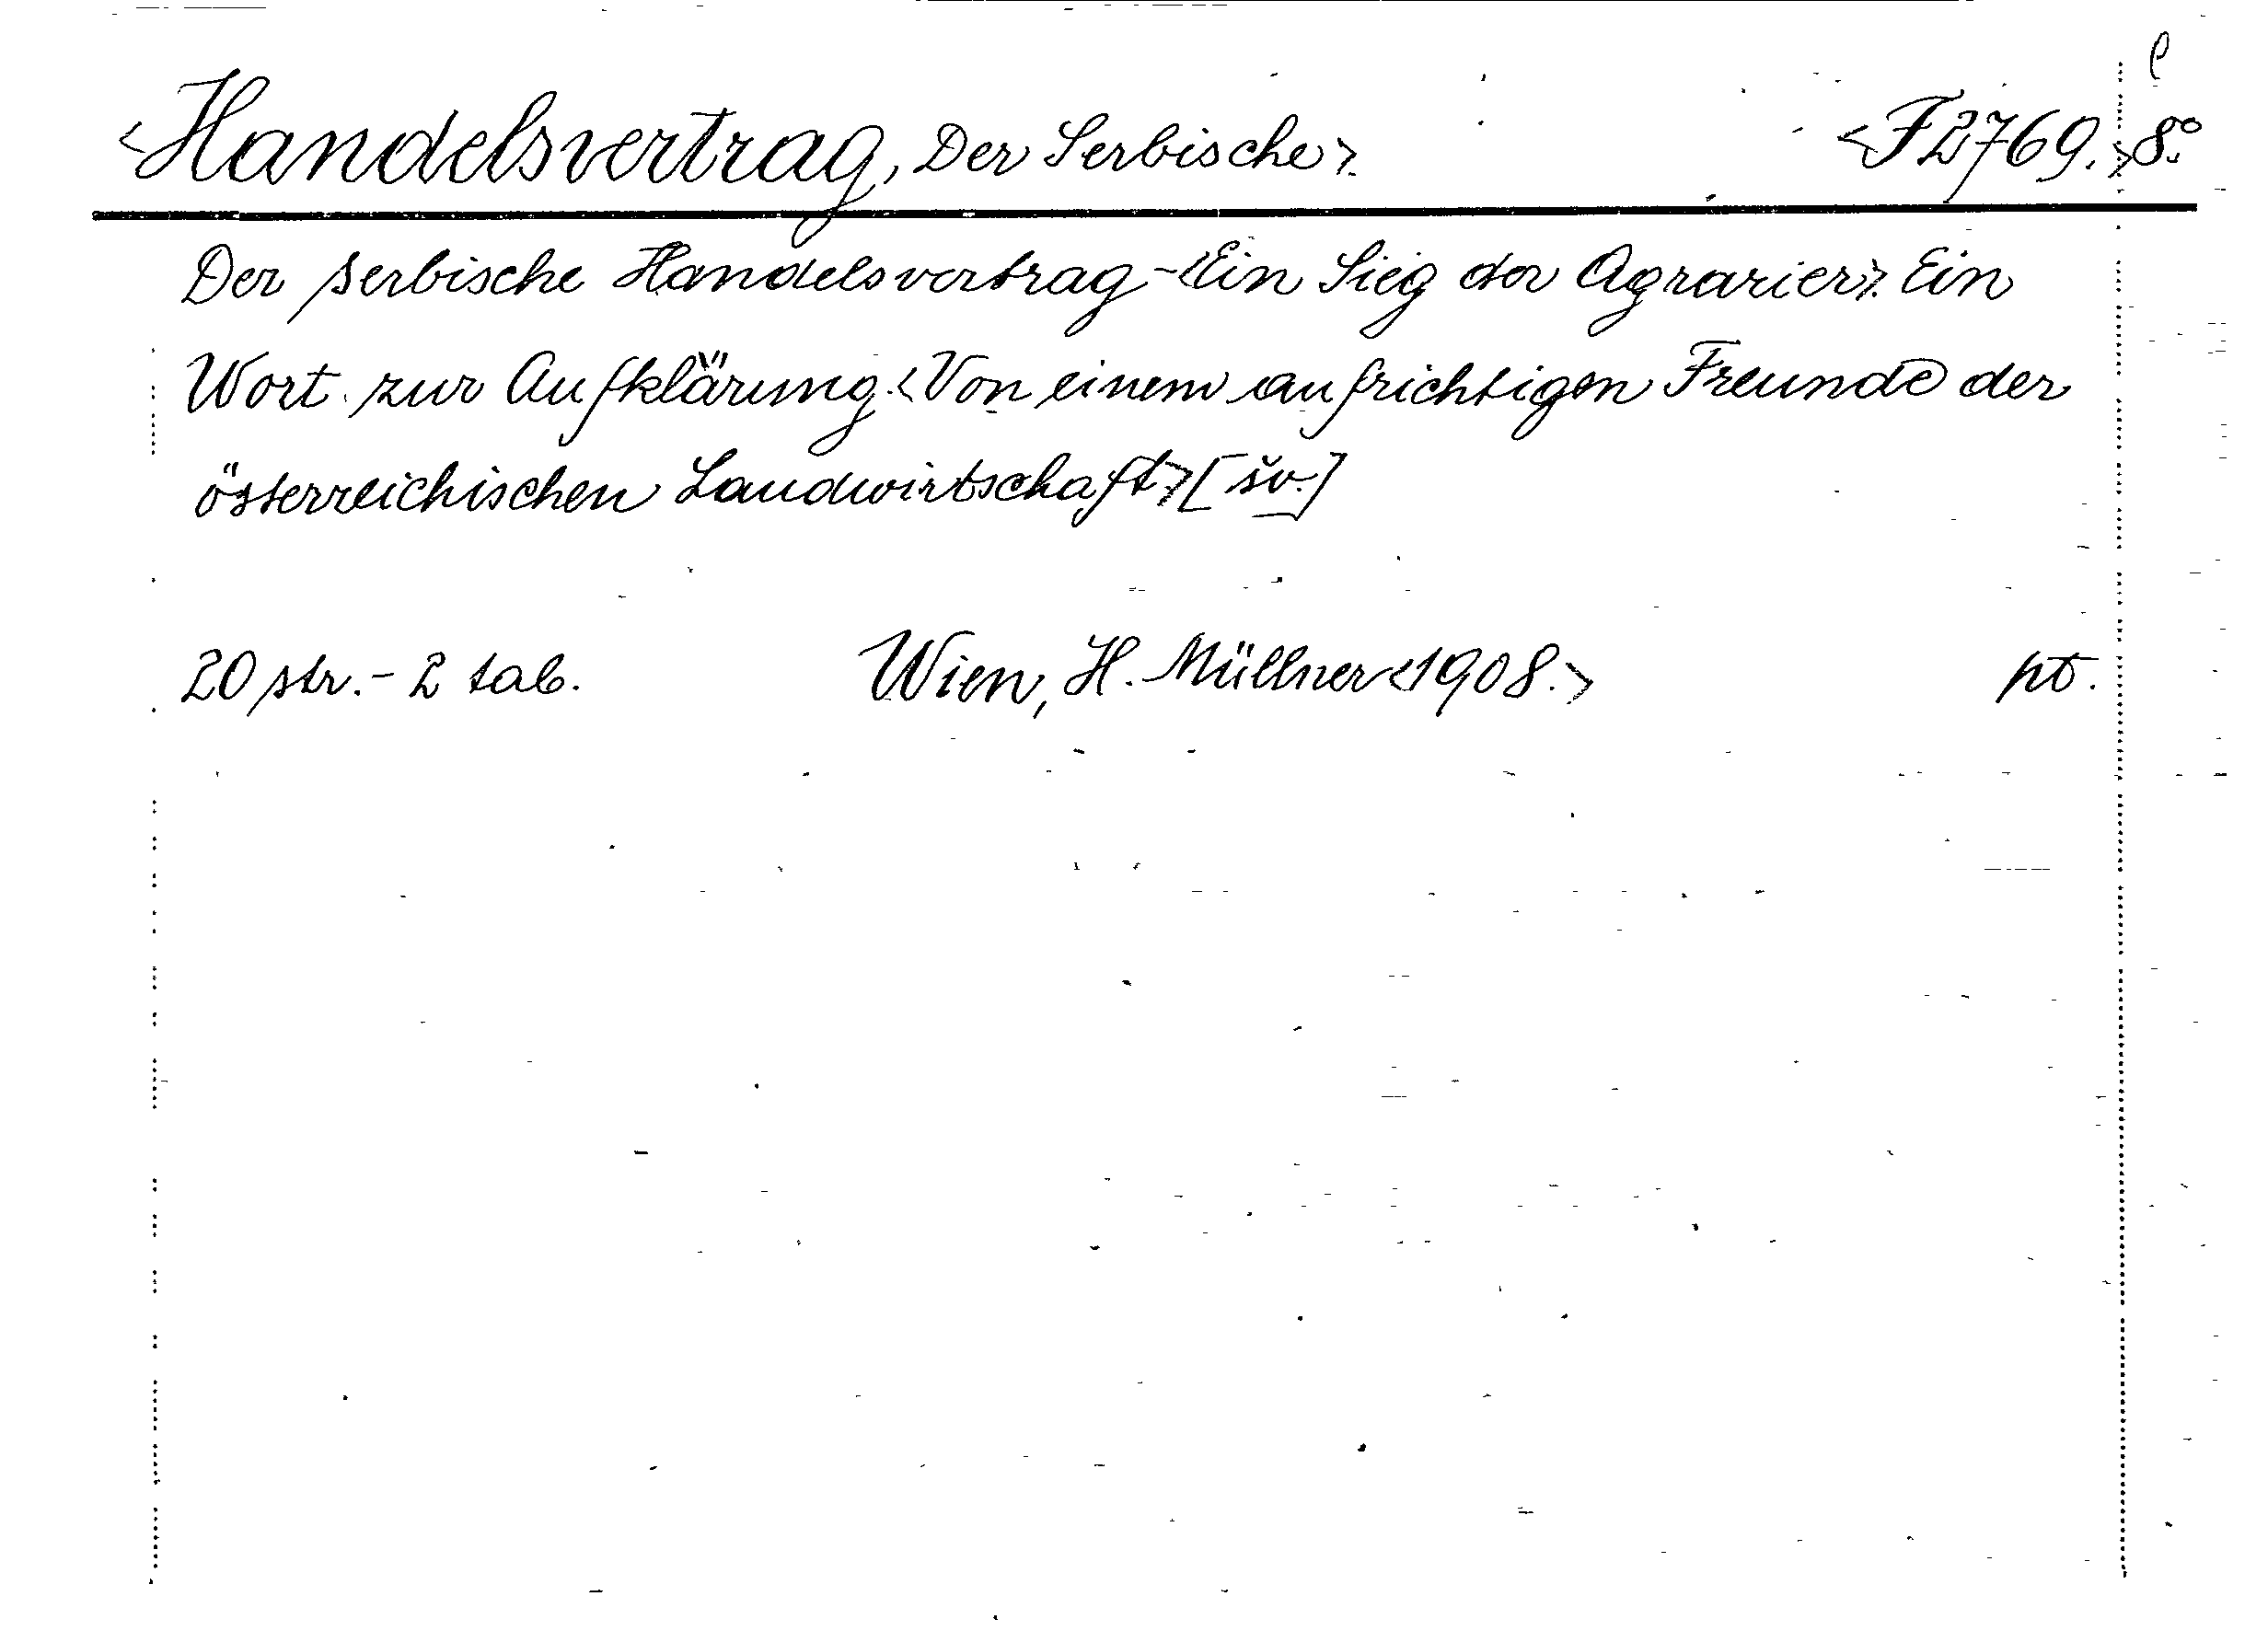 <Handelsvertrag, Der Serbische> <F 2769.> 8°.
Der serbische Handelsvertrag - <Ein Sieg der Agrarier>. Ein
Wort zur Aufklärung. <Von einem aufrichtigen Freunde der
österreichischen Landwirtschaft> [šv.]
20 str. - 2 tab. Wien, H. Müllner <1908.>